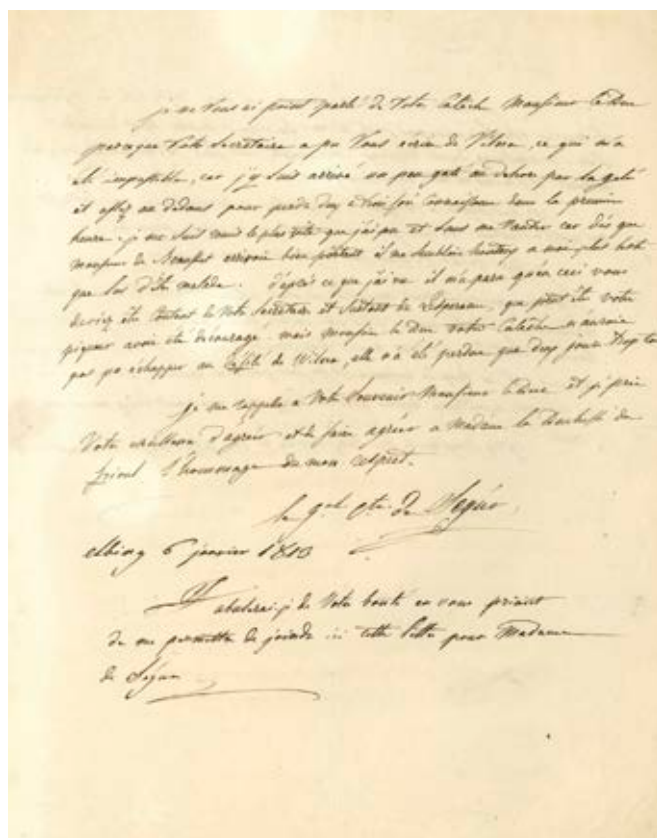 je ne vous ai point parlé de votre calèche Monsieur le Duc
parceque votre secretaire a pu vous écrire de Vilna, ce qui m'a
été impossible, car j'y suis arrivé un peu gaté au dehors par la gelé
et assez au dedans pour perdre deux à trois fois connaissance dans la première
heure. je me suis remis le plus vite que j'ai pu et sans me vanter car dès que
monsieur de Beausset arrivoit bien portant il me sembloit honteux a moi plus
que lui d'être malade. d'après ce que j'ai vu il m'a paru qu'en ceci vous
deviez être content de votre secretaire et surtout de que peut être votre
piqueur avoit été découragé. mais monsieur le Duc votre calèche n'auroit
pas pu échapper au défilé de Wilna, elle n'a été perdue que deux jours trop tot
je me rappelle a votre souvenir Monsieur le Duc et je prie
votre excellence d'agréer et de faire agréer a Madame la Duchesse de
frioul l'hommage de mon respect.
le gal cte. de Ségur
elbing 6 janvier 1813
abuserai-je de votre bonté en vous priant
de me permettre de joindre ici cette lettre pour Madame
de Ségur